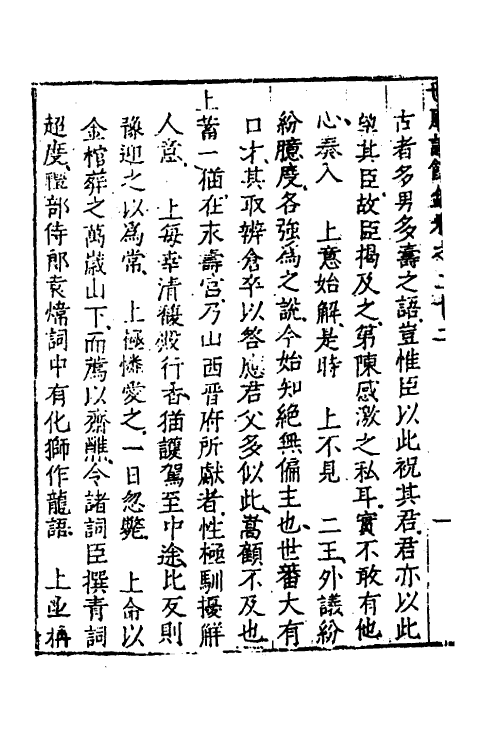 古者多男多壽之語豈惟臣以此祝其君君亦以此
望其臣故臣揭及之第陳感激之私耳實不敢有他
心奏入　上意始解是時　上不見　二王外議紛
紛臆度各強為之說今始知絕無偏主也世蕃大有
口才其取辨倉卒以答應君父多似此嵩顧不及也
上蓄一猫在永壽宮乃山西晉府所獻者性極馴擾解
人意　上每幸清馥殿行香猫護駕至中途比反則
豫迎之以為常　上極憐愛之一日忽斃　上命以
金棺葬之萬歲山下而薦以齋醮令諸詞臣撰青詞
超度禮部侍郎袁煒詞中有化獅作龍語　上亟稱